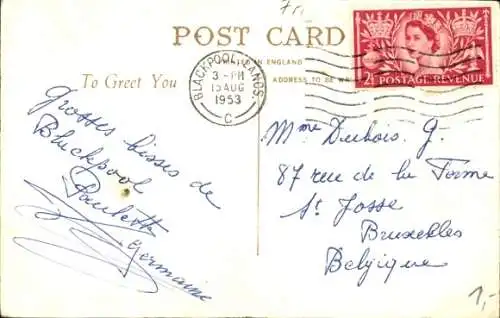 POST CARD
IN ENGLAND
To Greet You
ADDRESS TO BE
BLACKPOOL. LANCS.
3 - PM
13 AUG
1953
C
POSTAGE REVENUE
Grosses bises de
Blackpool
Paulette
Germaine
Mme Dubois. G.
87 rue de la Ferme
St. Josse
Bruxelles
Belgique
1,-